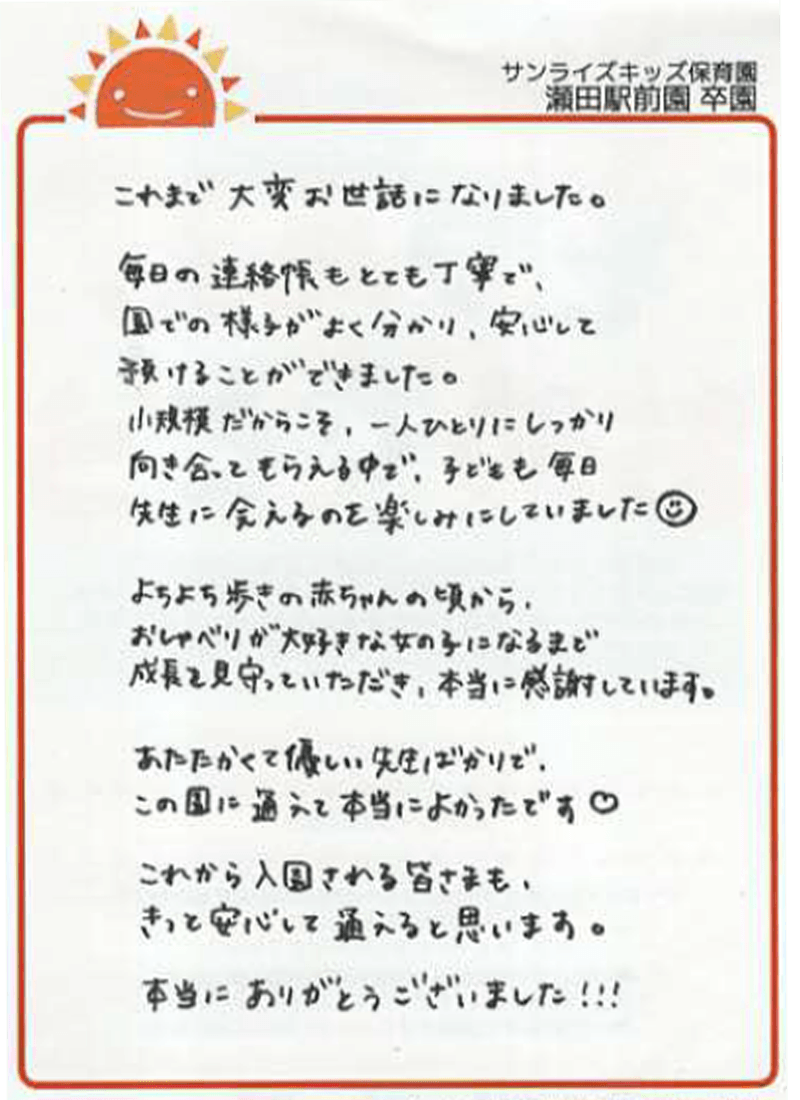 サンライズキッズ保育園
瀬田駅前園 卒園
これまで 大変お世話になりました。
毎日の連絡帳もとても丁寧で、
園での様子がよく分かり、安心して
預けることができました。
小規模だからこそ、一人ひとりにしっかり
向き合ってもらえる中で、子どもも毎日
先生に会えるのを楽しみにしていました☺
よちよち歩きの赤ちゃんの頃から、
おしゃべりが大好きな女の子になるまで
成長を見守っていただき、本当に感謝しています。
あたたかくて優しい先生ばかりで、
この園に通えて本当によかったです♡
これから入園される皆さまも、
きっと安心して通えると思います。
本当にありがとうございました!!!